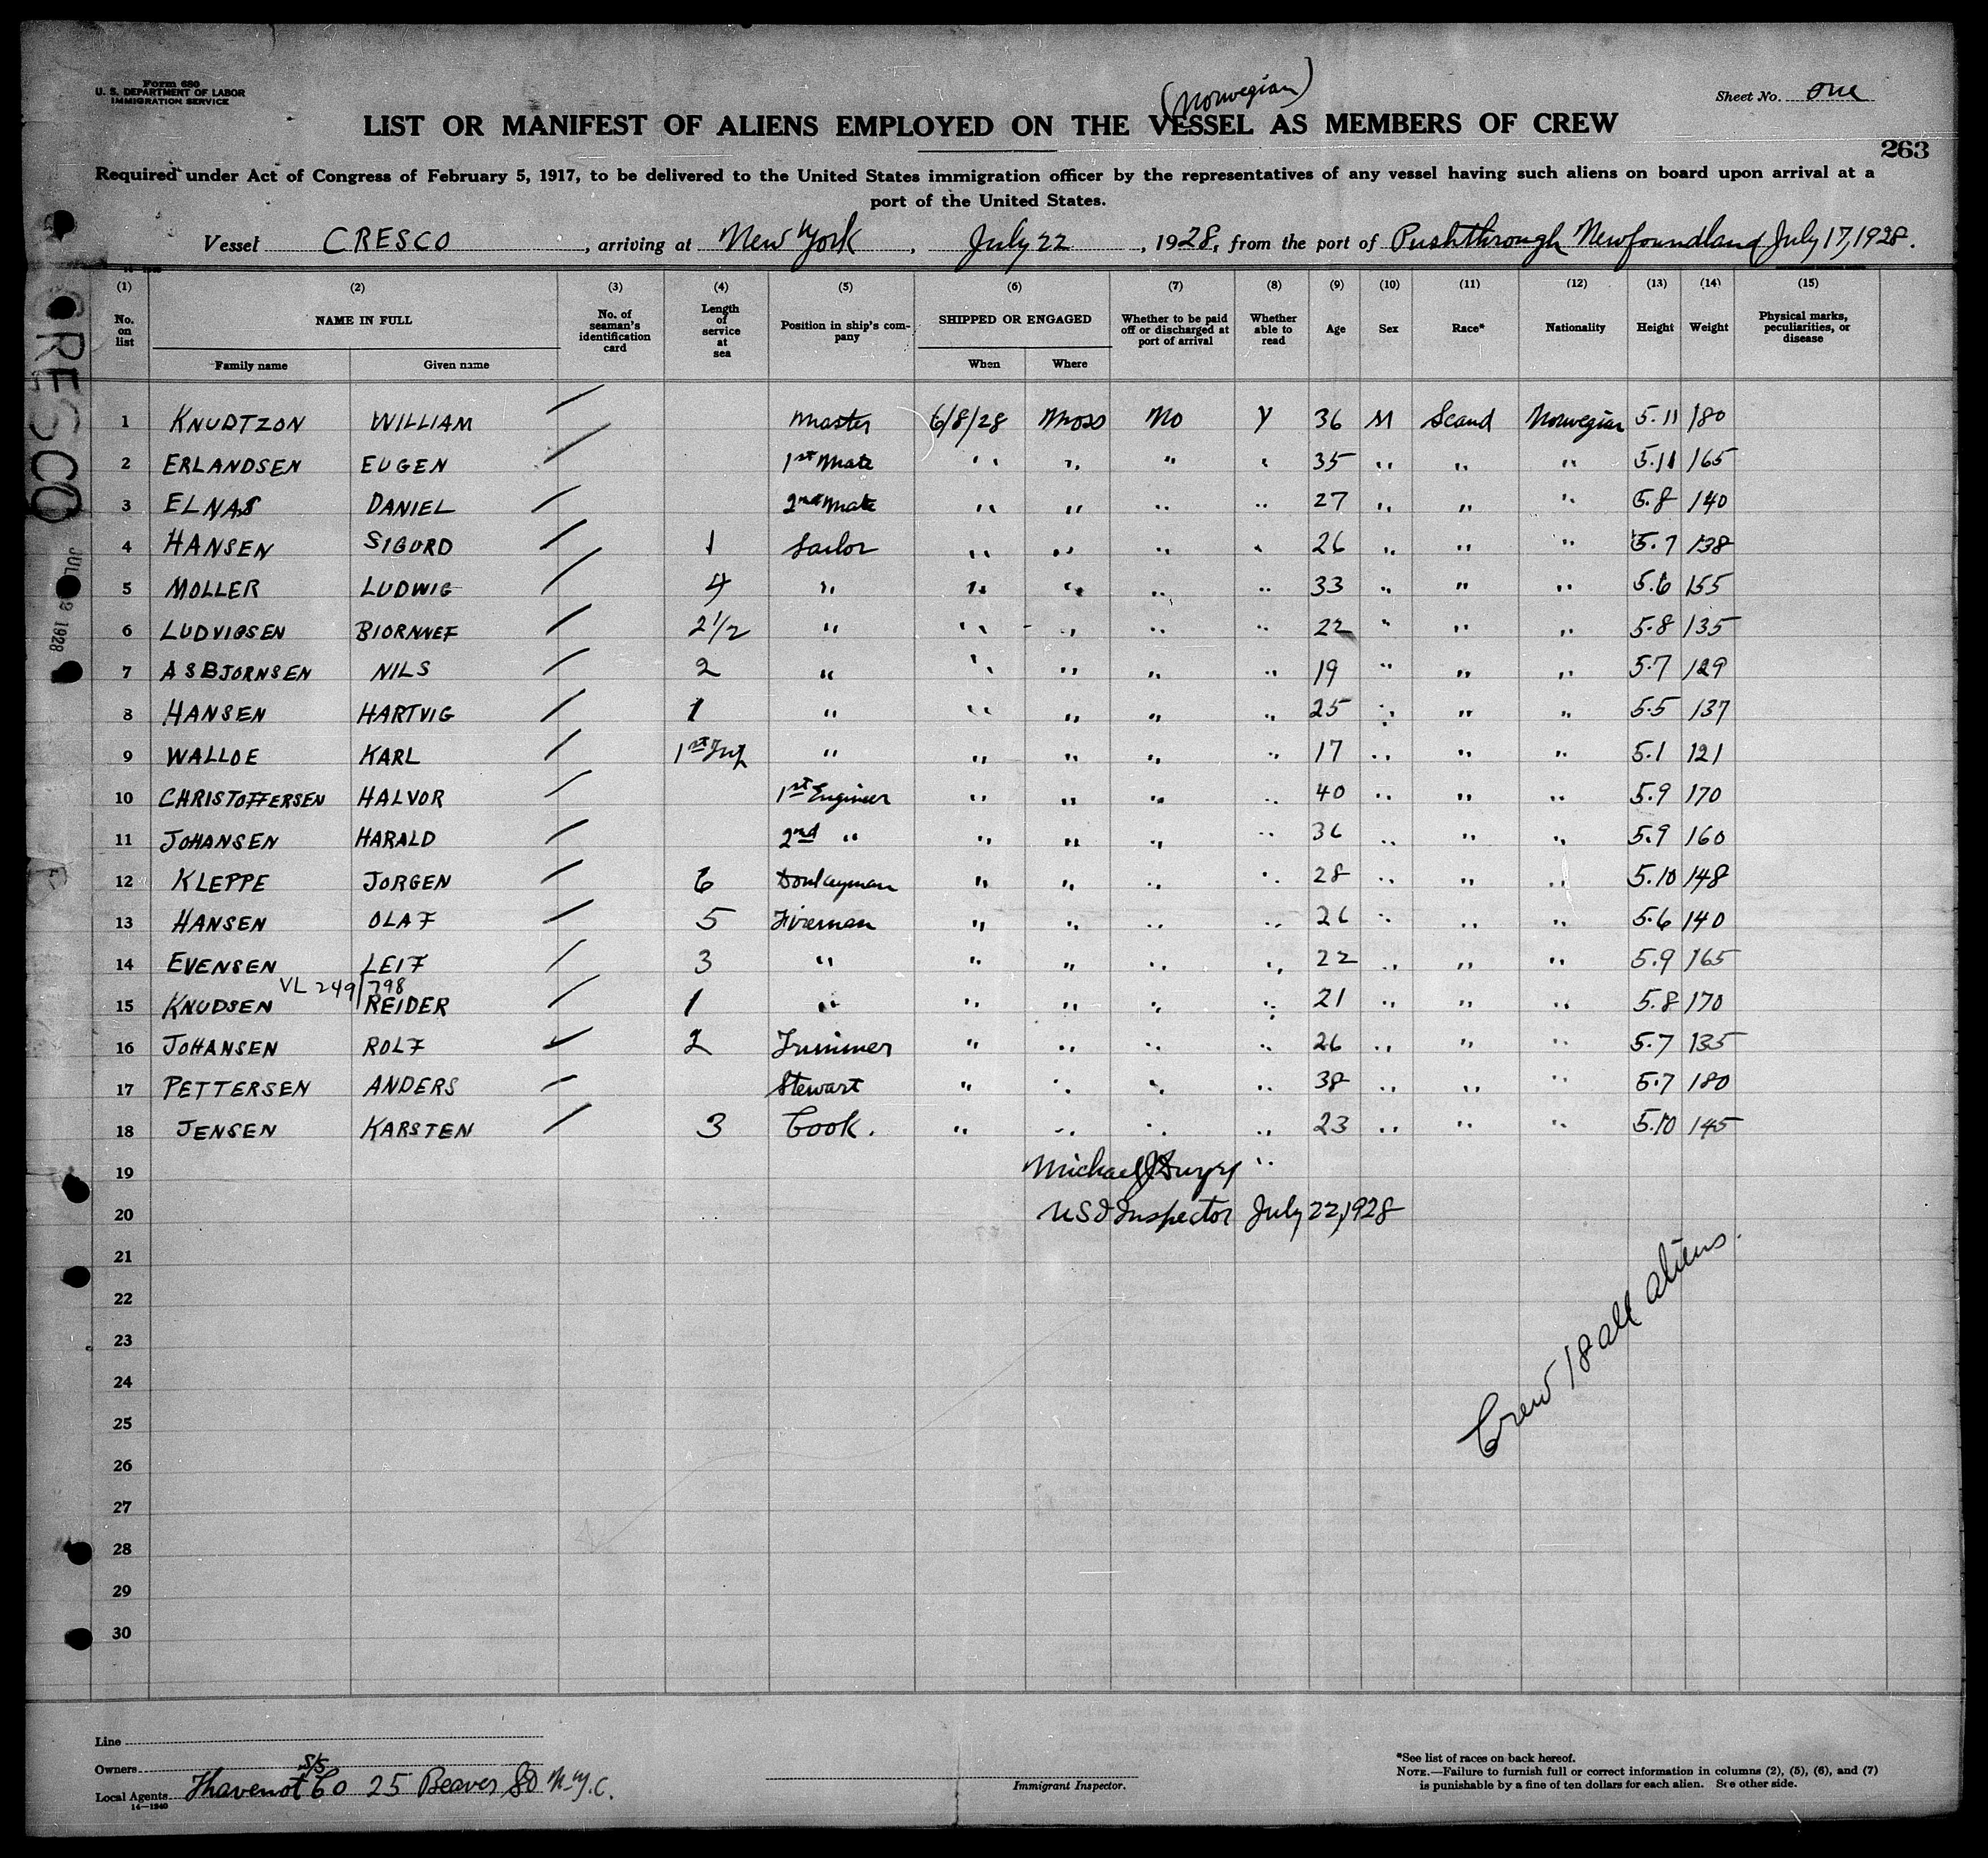 Form 680
U. S. DEPARTMENT OF LABOR
IMMIGRATION SERVICE
(Norwegian)
Sheet No. one
LIST OR MANIFEST OF ALIENS EMPLOYED ON THE VESSEL AS MEMBERS OF CREW
263
Required under Act of Congress of February 5, 1917, to be delivered to the United States immigration officer by the representatives of any vessel having such aliens on board upon arrival at a
port of the United States.
Vessel CRESCO, arriving at New York, July 22, 1928, from the port of Pushthrough Newfoundland July 17, 1928.
(1) (2) (3) (4) (5) (6) (7) (8) (9) (10) (11) (12) (13) (14) (15)
No. on list NAME IN FULL No. of seaman's identification card Length of service at sea Position in ship's company SHIPPED OR ENGAGED Whether to be paid off or discharged at port of arrival Whether able to read Age Sex Race* Nationality Height Weight Physical marks, peculiarities, or disease
Family name Given name When Where
1 KNUDTZON WILLIAM / Master 6/8/28 Moss No y 36 M Scand Norwegian 5.11 180
2 ERLANDSEN EUGEN / 1st Mate " " " " 35 " " " 5.11 165
3 ELNAS DANIEL / 2nd Mate " " " " 27 " " " 5.8 140
4 HANSEN SIGURD / 1 Sailor " " " " 26 " " " 5.7 138
5 MOLLER LUDWIG / 4 " " " " " 33 " " " 5.6 155
6 LUDVIGSEN / 2 1/2 " " " " " 22 " " " 5.8 135
7 ASBJORNSEN NILS / 2 " " " " " 19 " " " 5.7 129
8 HANSEN HARTVIG / 1 " " " " " 25 " " " 5.5 137
9 WALLOE KARL / 1st " " " " " 17 " " " 5.1 121
10 CHRISTOFFERSEN HALVOR / 1st Engineer " " " " 40 " " " 5.9 170
11 JOHANSEN HARALD / 2nd " " " " " 36 " " " 5.9 160
12 KLEPPE JORGEN / 6 Donkeyman " " " " 28 " " " 5.10 148
13 HANSEN OLAF / 5 Fireman " " " " 26 " " " 5.6 140
14 EVENSEN LEIF / 3 " " " " " 22 " " " 5.9 165
VL 249/798
15 KNUDSEN REIDER / 1 " " " " " 21 " " " 5.8 170
16 JOHANSEN ROLF / 2 Trimmer " " " " 26 " " " 5.7 135
17 PETTERSEN ANDERS / Stewart " " " " 38 " " " 5.7 180
18 JENSEN KARSTEN / 3 Cook. " " " " 23 " " " 5.10 145
19 Michael J "
20 USI Inspector July 22, 1928
21
22
23
24
25
26
27
28
29
30
Crew 18 all aliens.
CRESCO
1928
Line
Owners
Local Agents Thavenot S/S Co 25 Beaver St N.Y.C.
14—1240
Immigrant Inspector.
*See list of races on back hereof.
NOTE.—Failure to furnish full or correct information in columns (2), (5), (6), and (7)
is punishable by a fine of ten dollars for each alien. See other side.